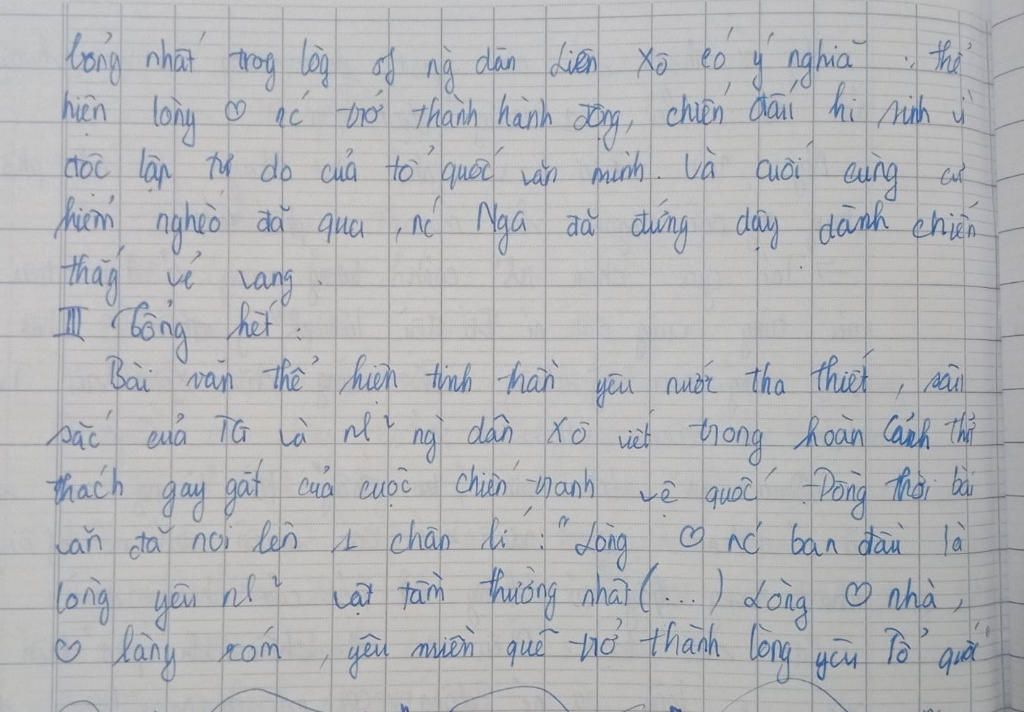 bỏng nhất trog lòg of ng dân Liên Xô có ý nghĩa : thể
hiện lòng ♡ nc trở thành hành động, chiến đấu hi sinh vì
độc lập tự do của tổ quốc văn minh. Và cuối cùng
hiểm nghèo đã qua, nc Nga đã đứng dậy dành chiến
thắg vẻ vang.
III Tổng kết :
Bài văn thể hiện tinh thần yêu nước tha thiết, sâu
sắc của TG và nh² ng dân Xô viết trong hoàn cảnh thử
thách gay gắt của cuộc chiến tranh vệ quốc. Đồng thời bài
văn đã nói lên 1 chân lí : "Lòng ♡ nc ban đầu là
lòng yêu nh² vật tầm thường nhất (...) Lòng ♡ nhà,
♡ làng xóm, yêu miền quê trở thành lòng yêu Tổ quốc"